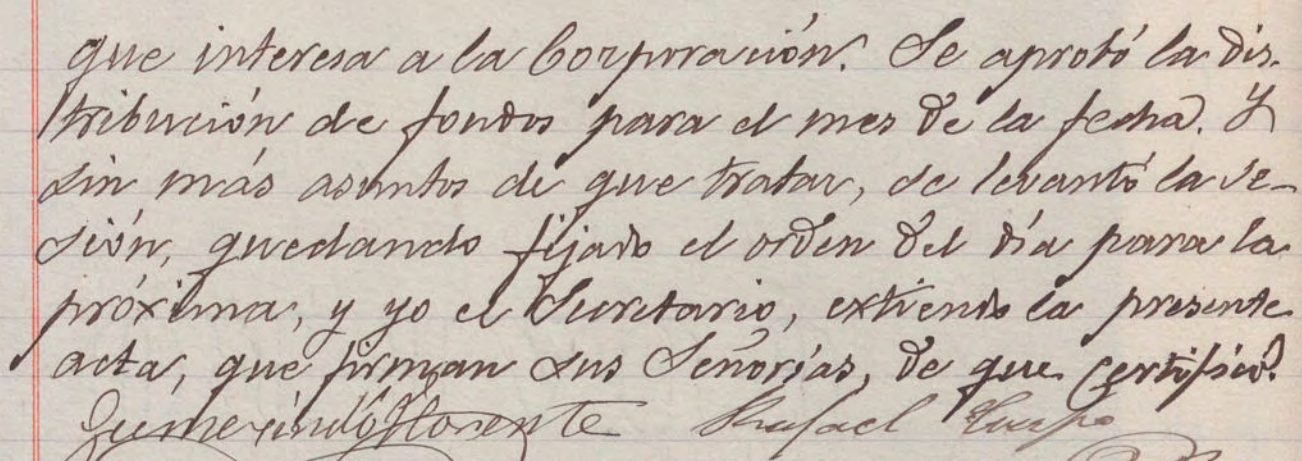 que interesa a la Corporación. Se aprobó la dis-
tribución de fondos para el mes de la fecha. Y
sin más asuntos de que tratar, se levantó la se-
sión, quedando fijado el orden del día para la
próxima, y yo el Secretario, extiendo la presente
acta, que firman sus Señorías, de que certifico.
Gumersindo Llorente Rafael